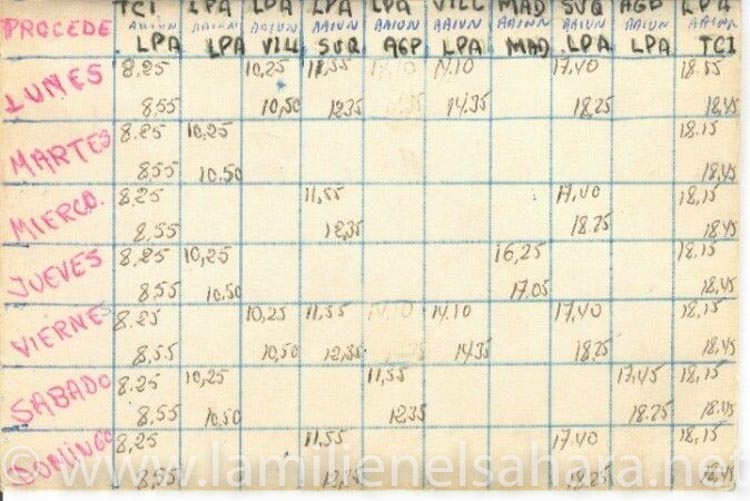 PROCEDE TCI LPA LPA LPA LPA VILL MAD SVQ AGP LPA
AAIUN AAIUN AAIUN AAIUN AAIUN AAIUN AAIUN AAIUN AAIUN AAIUN
LPA LPA VILL SVQ AGP LPA MAD LPA LPA TCI
LUNES 8.25 10,25 11,55 14.10 14.10 17.40
8.55 10,50 12.35 14.35 18.25 18.45
MARTES 8.25 10,25 18.15
8.55 10.50 18.45
MIERCO. 8.25 11.55 17.40 18,15
8.55 12.35 18.25 18.45
JUEVES 8.25 10,25 16,25 18.15
8.55 10.50 17.05 18.45
VIERNES 8.25 10,25 11.55 14.10 14.10 17.40 18.15
8.55 10,50 12.35 14.35 18.25 18.45
SABADO 8.25 10,25 11,55 17.45 18,15
8.55 10.50 12.35 18.25 18.45
DOMINGO 8,25 11.55 17.40 18,15
8.55 12.35 18.25 18.45
© www.lamilienelsahara.net